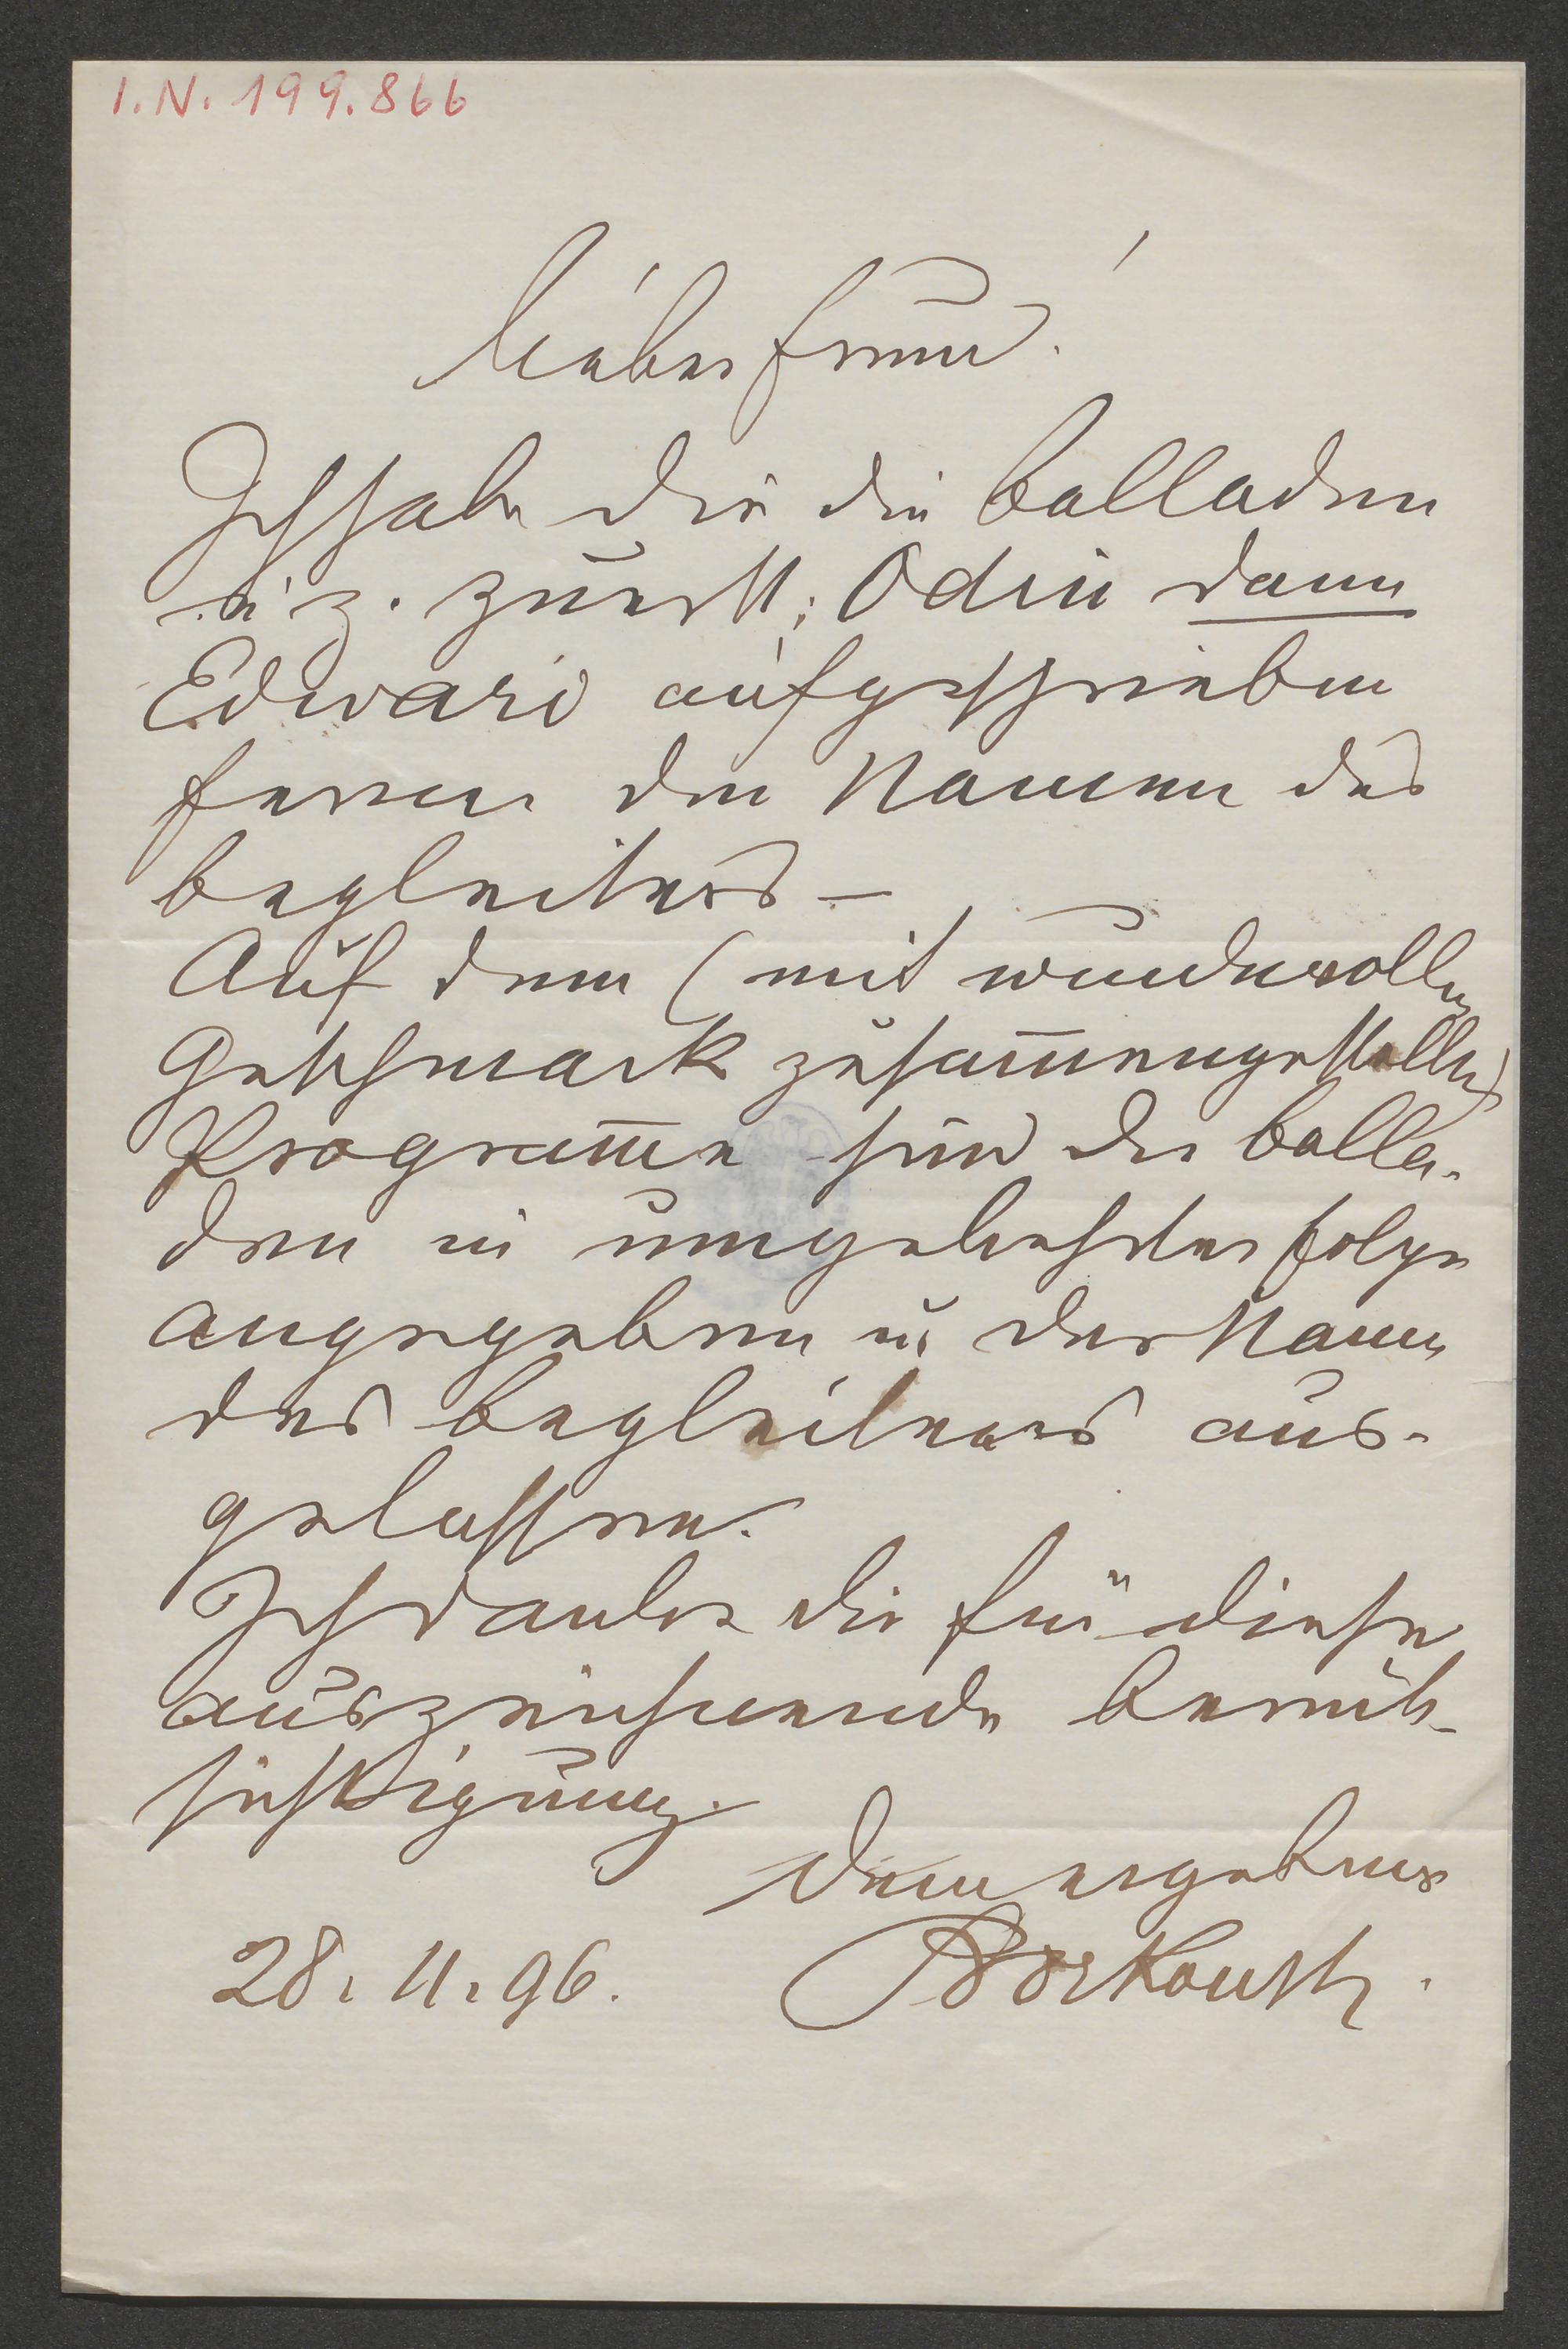 I.N. 199.866
Lieber Freund!
Ich habe dir die Balladen
u. z. zuerst: Odin dann
Edward aufgeschrieben
ferner den Namen des
Begleiters –
Auf dem (mit wundervollen
Geschmack zusam̅engestellten)
Program̅e sind die Balla-
den in umgekehrter Folge
angegeben u. der Name
des Begleiters aus-
gelassen.
Ich danke dir für diese
auszeichnende Berück-
sichtigung.
Dein ergebener
28. 11. 96.